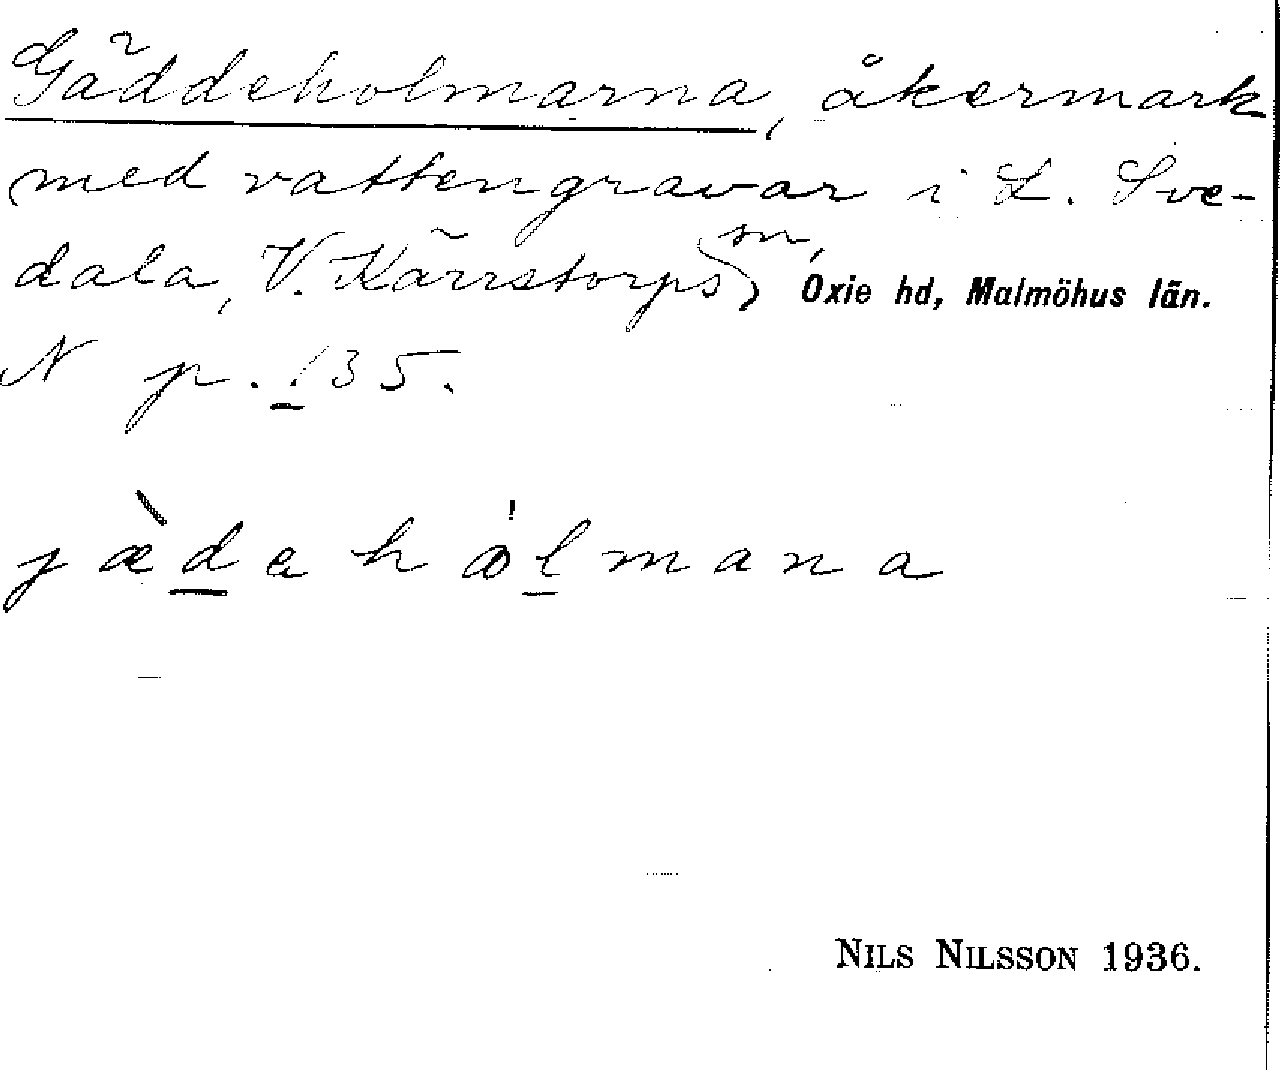 Gäddeholmarna, åkermark
med vattengravar i L. Sve-
dala, V. Kärrstorps sn, Oxie hd, Malmöhus län.
N p. 135.
jæ̀dah ålmana
NILS NILSSON 1936.